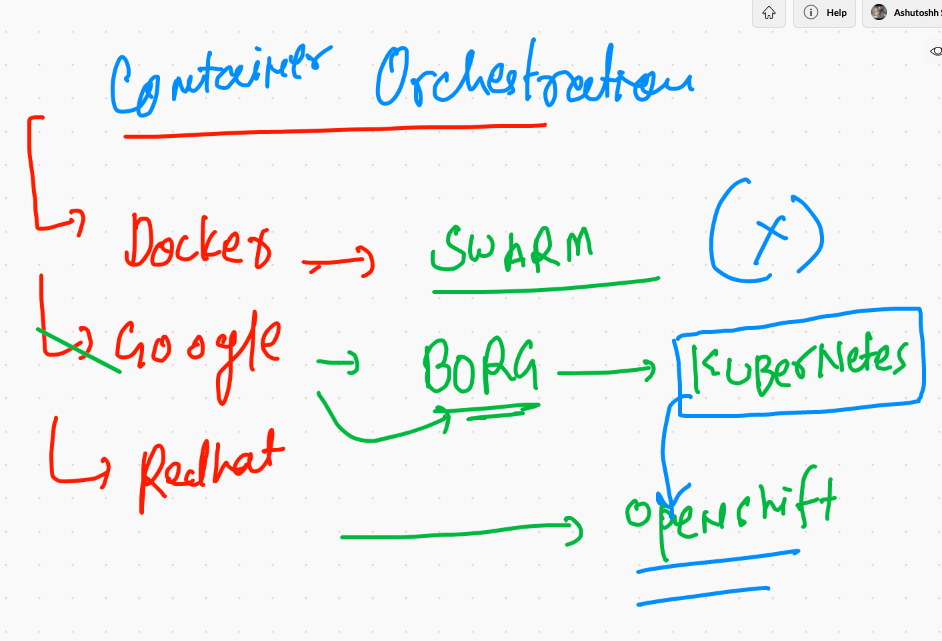 Help
Ashutoshh S
Container Orchestration
Docker → SWARM (X)
Google → BORG → KUBerNetes
Redhat → openshift